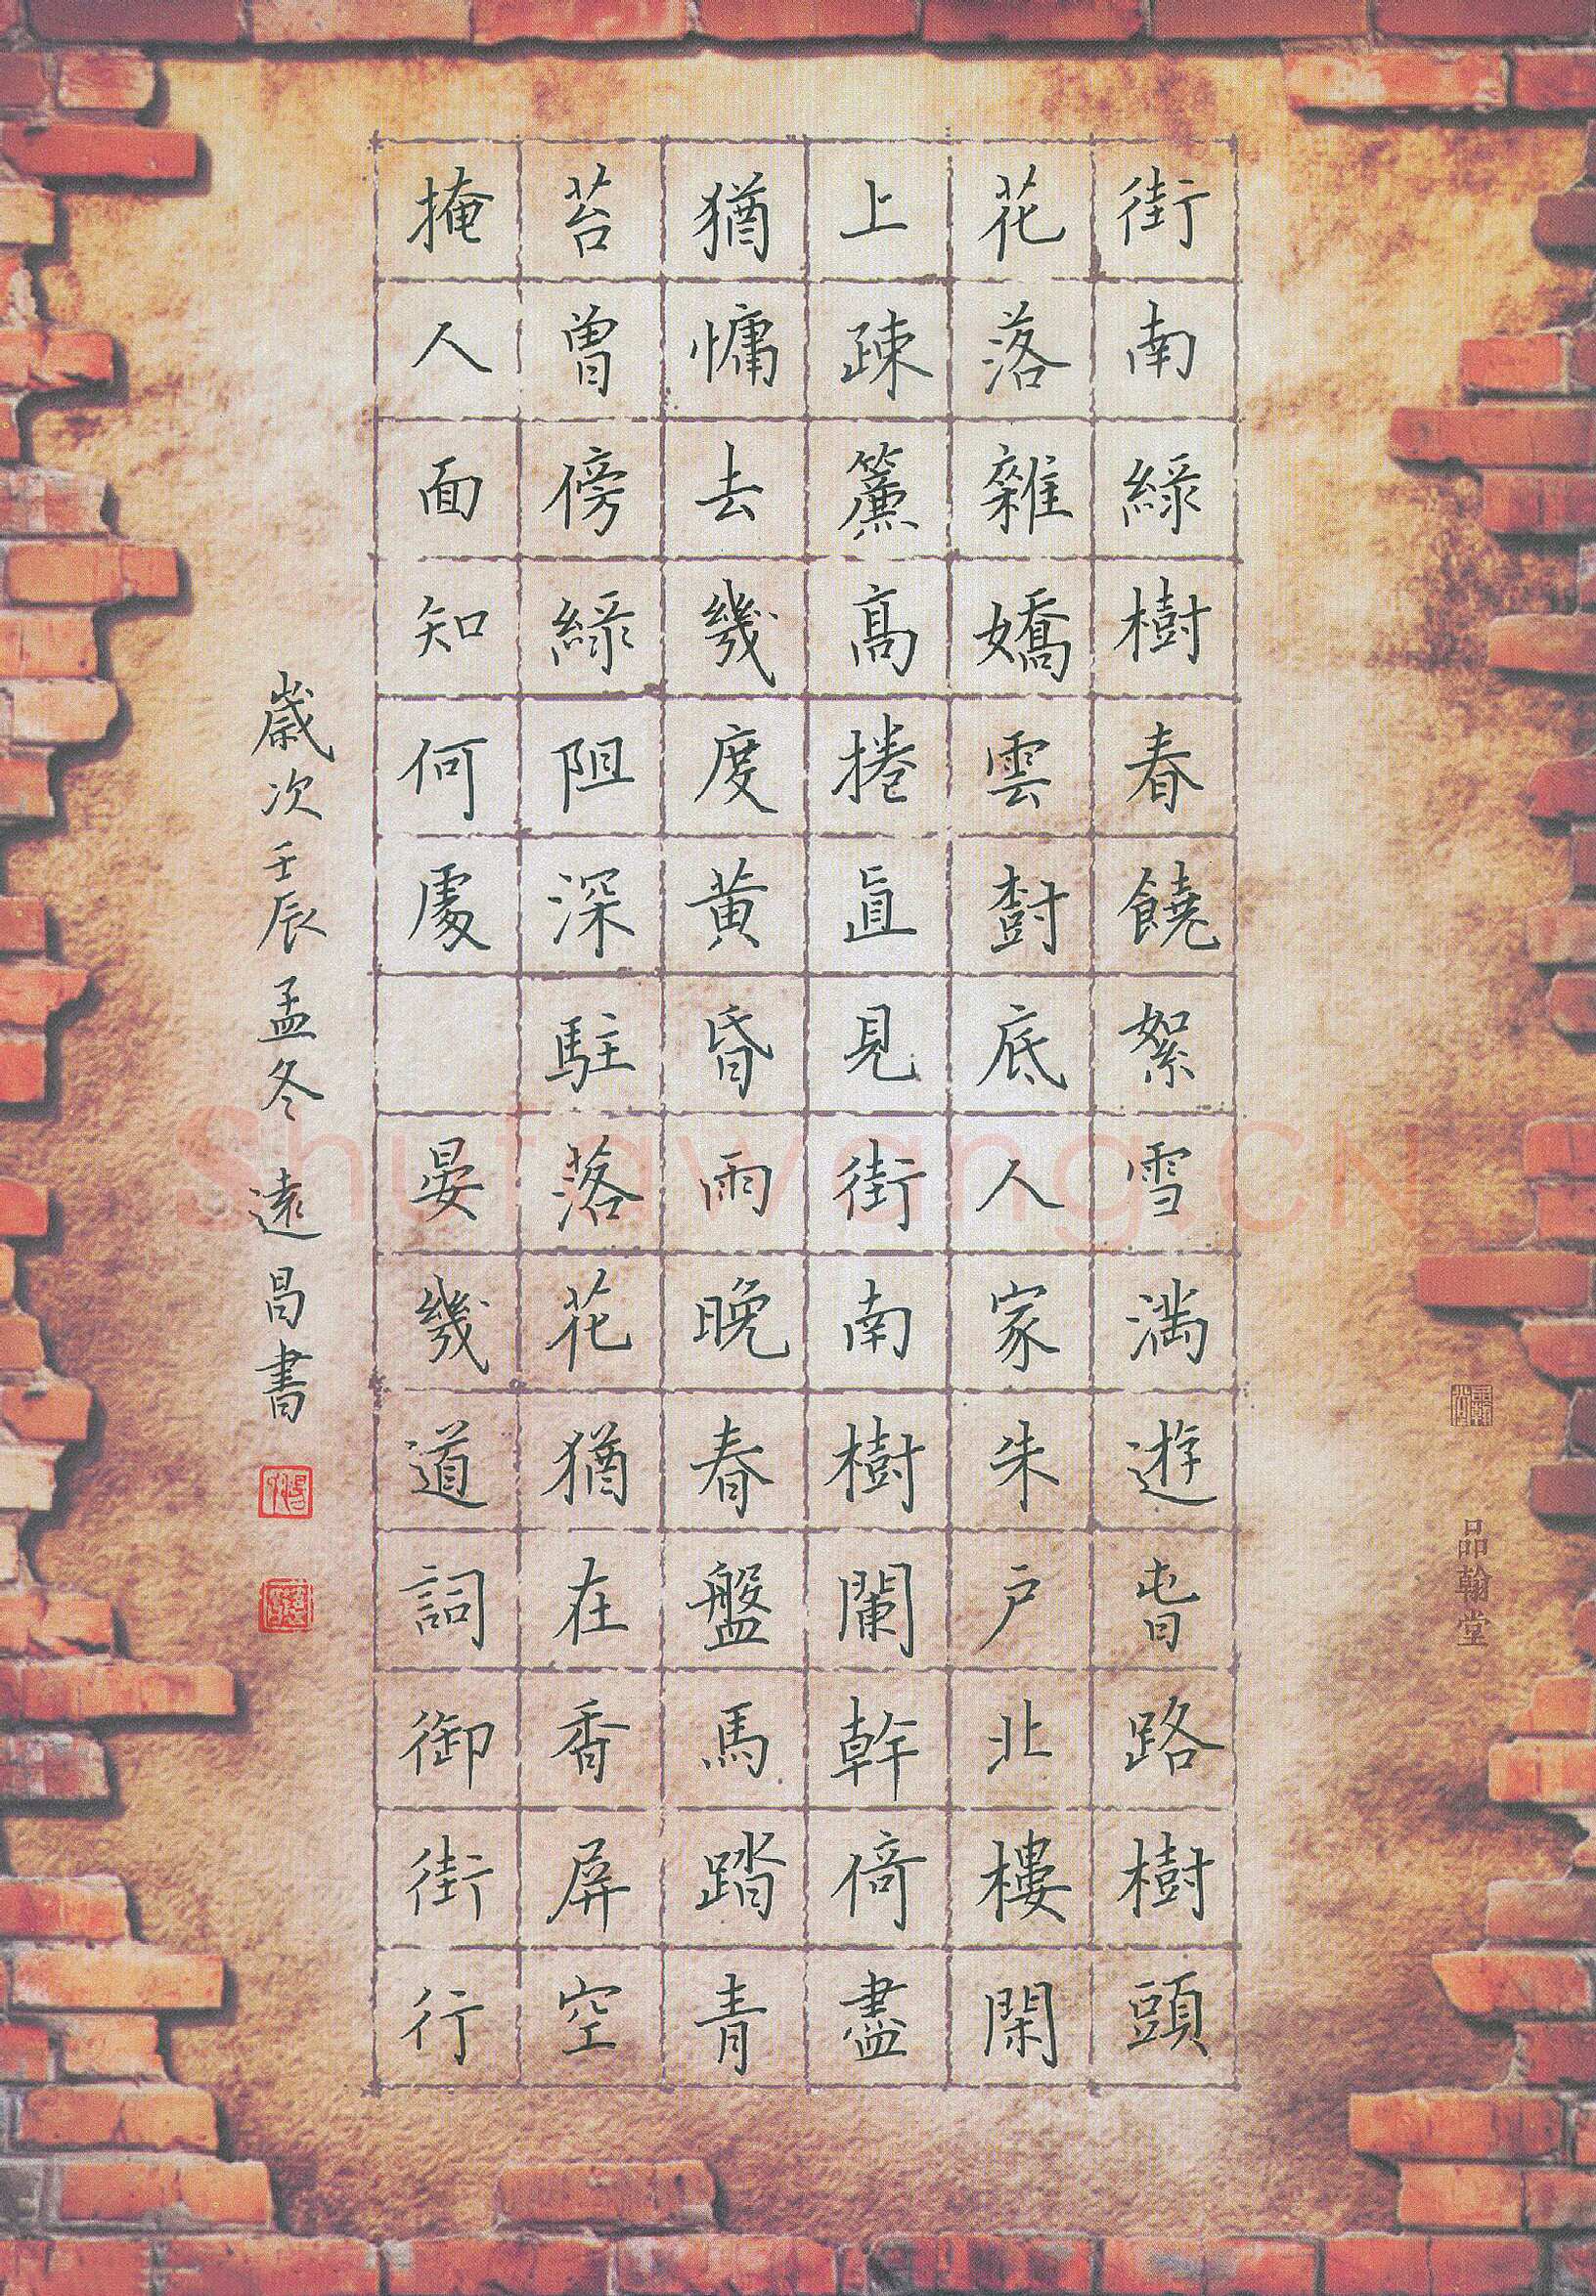 街南綠樹春饒絮雪滿遊旾路樹頭
花落雜嬌雲樹底人家朱户北樓閑
上踈簾髙捲直見街南樹闌幹倚盡
猶慵去幾度黄昏雨晚春盤馬踏青
苔曾傍綠阻深駐落花猶在香屏空
掩人面知何處 晏幾道詞御街行
歲次壬辰孟冬 遠昌書
品翰堂
Shufawang.CN